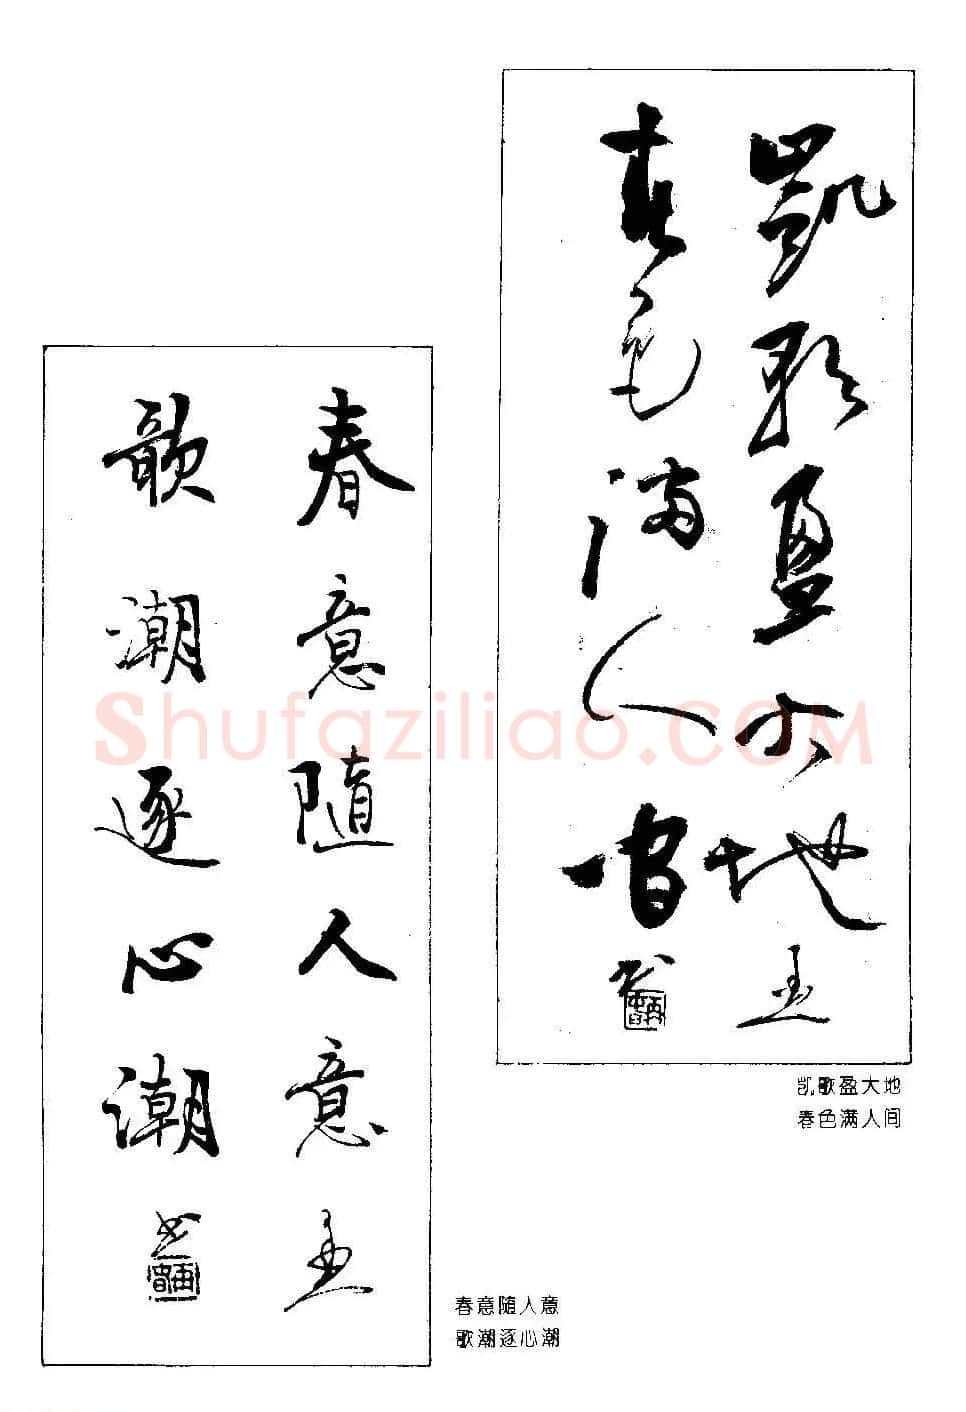 凱歌盈大地
春色满人间
凯歌盈大地
春色满人间
春意随人意
歌潮逐心潮
春意随人意
歌潮逐心潮
Shufaziliao.COM